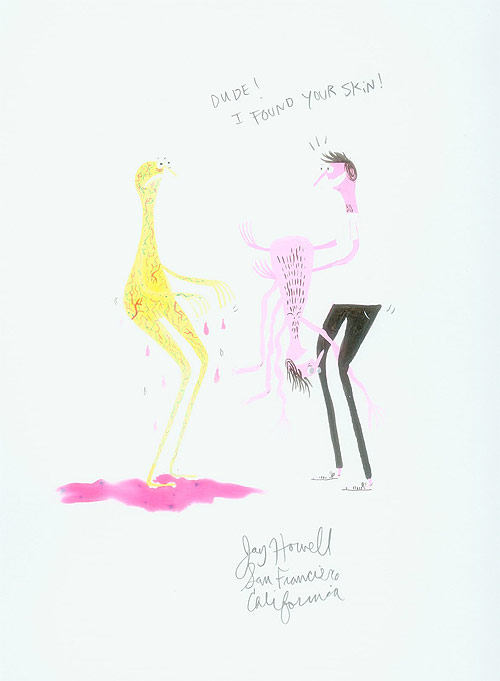 DUDE!
I FOUND YOUR SKiN!
Jay Howell
San Francisco
California